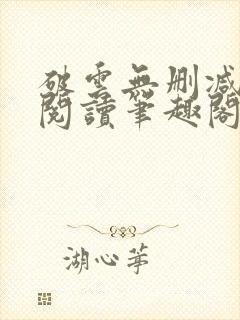 破雲無刪減
閱讀筆趣閣
湖心茅